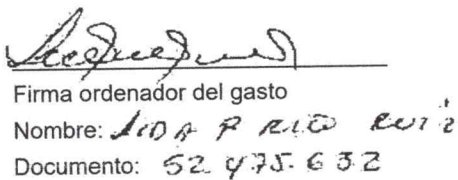 Firma ordenador del gasto
Nombre: AIDA P RICO RUIZ
Documento: 52.475.632